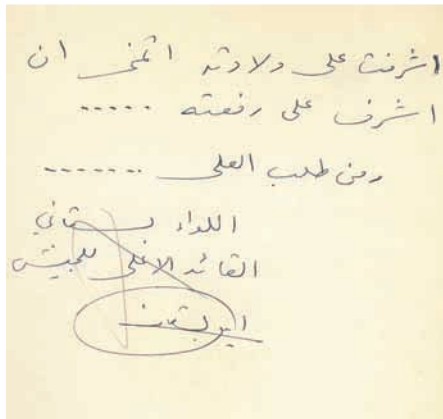 اشرفت على ولادته اتمنى ان
اشرف على رفعته .....
ومن طلب العلى ........
اللواء بستاني
القائد الاعلى للجيش